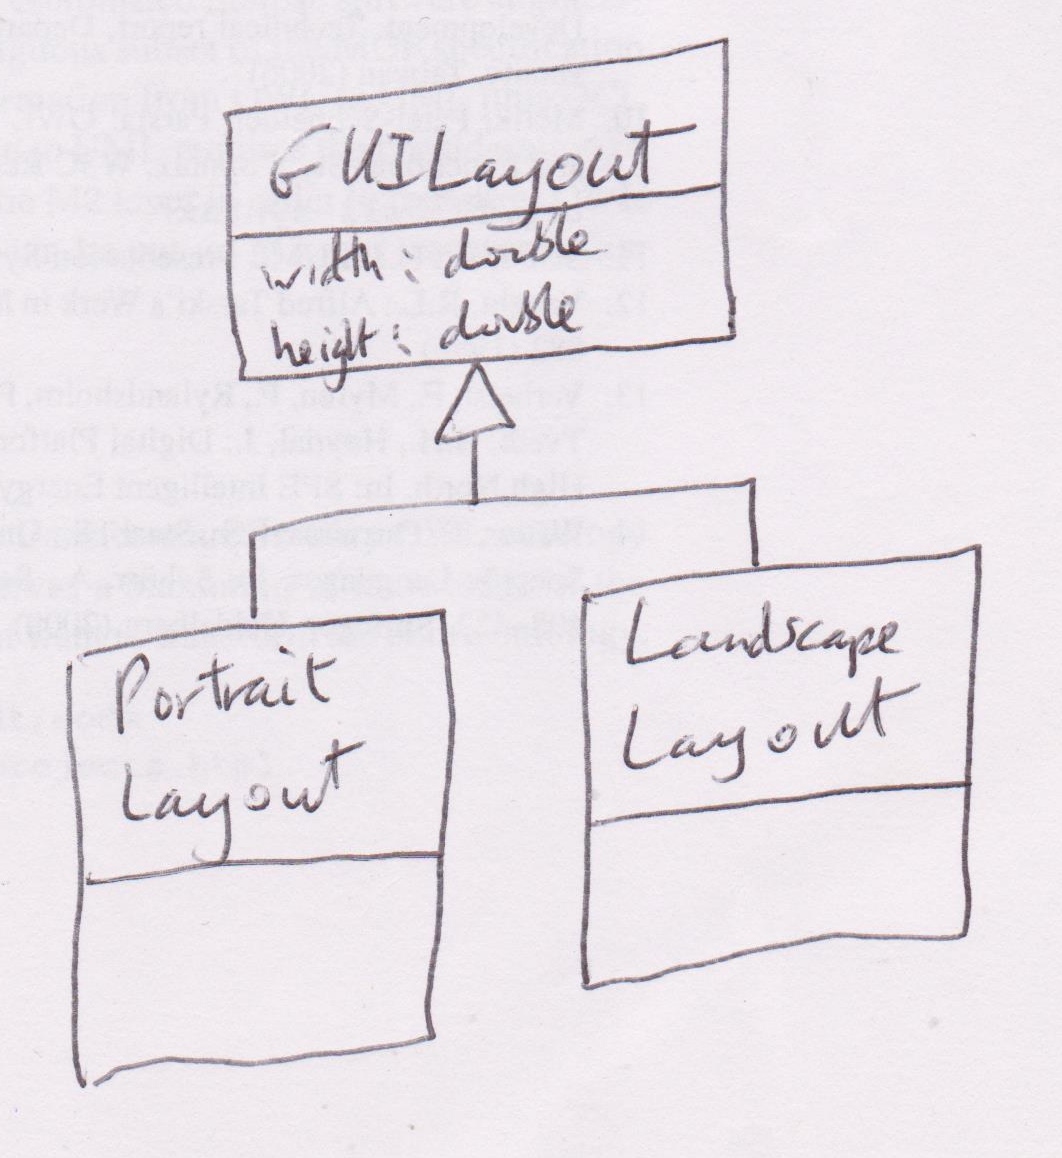 GUILayout
width : double
height : double
Portrait
Layout
Landscape
Layout